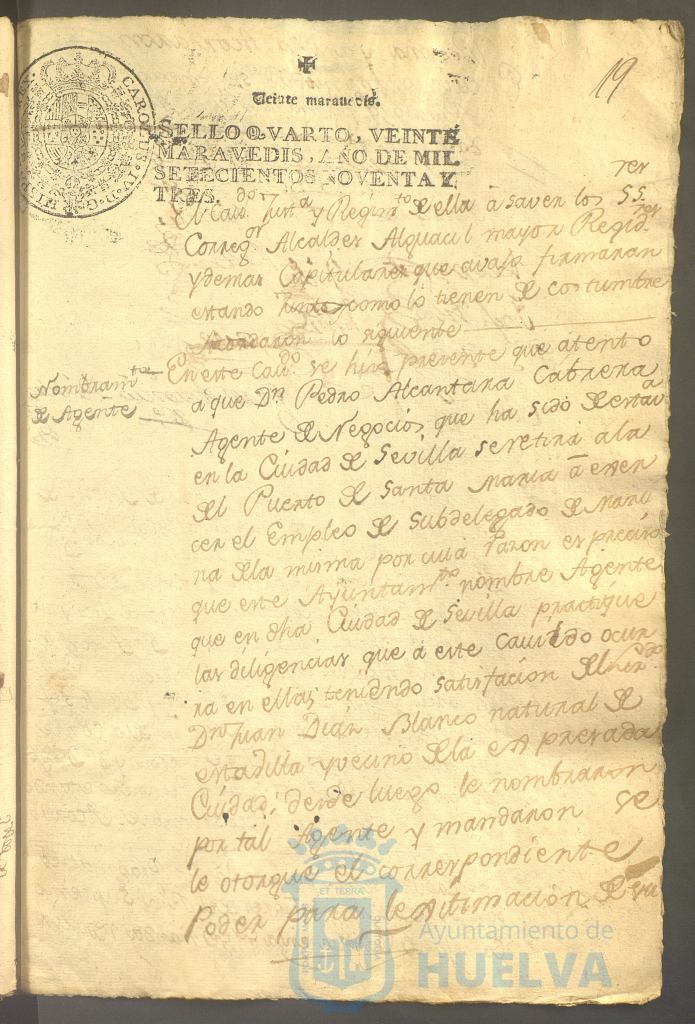 19
Veinte maravedis.
SELLO QVARTO, VEINTE
MARAVEDIS, AÑO DE MIL
SETECIENTOS NOVENTA Y
TRES.
CAROLUS IV D G HISP REX
El Cav.do Just.a y Regim.to de ella à saver los SS.res
Correg.or Alcaldes Alguacil mayor Regid.res
y demas Capitulares que avajo firmaran
estando juntos como lo tienen de costumbre
Acordaron lo siguiente
Nombram.to
de Agente
En este Cav.do se hizo presente que atento
a que Dn. Pedro Alcantara Cabrera
Agente de Negocios que ha sido de esta v.a
en la Ciudad de Sevilla se retira a la
del Puerto de Santa Maria à exer
cer el Empleo de Subdelegado de Mari
na de la misma por cuia razon es preciso
que este Ayuntam.to nombre Agente
que en dha Ciudad de Sevilla practique
las diligencias que à este Cavildo ocur
ra en ellas, teniendo satisfacion del
Dn. Juan Diaz Blanco natural de
esta villa y vecino de la expresada
Ciudad, desde luego le nombraron
por tal Agente y mandaron se
le otorgue el correspondiente
Poder para lexitimacion de su
ET TERRÆ
Ayuntamiento de
HUELVA